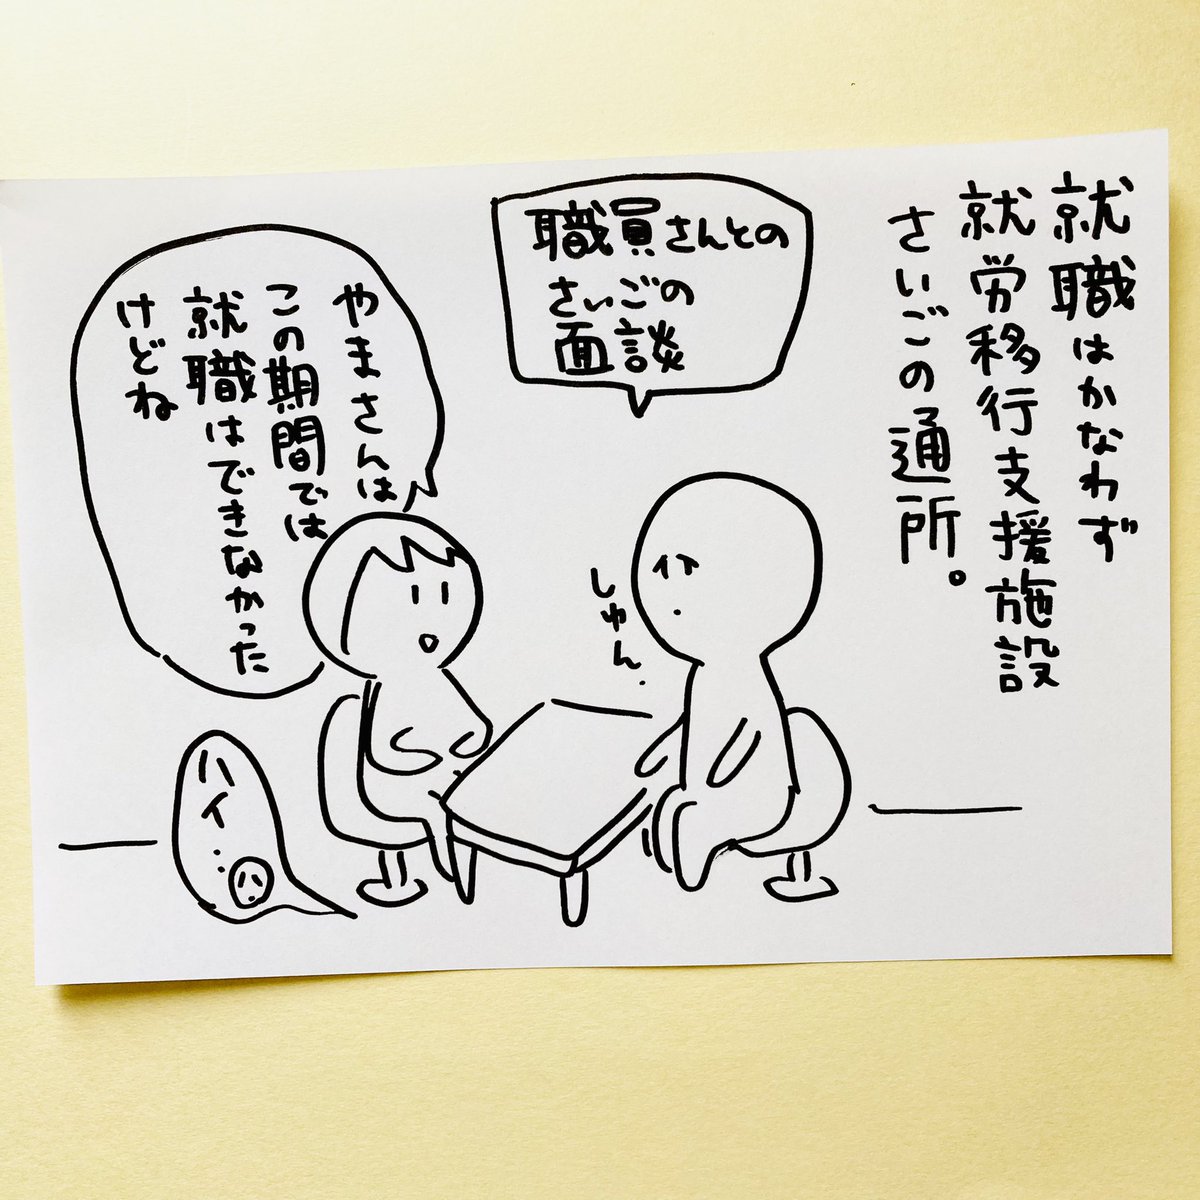 就職はかなわず
就労移行支援施設
さいごの通所。
職員さんとの
さいごの
面談
しゅん
やまさんは
この期間では
就職はできなかった
けどね
ハイ…